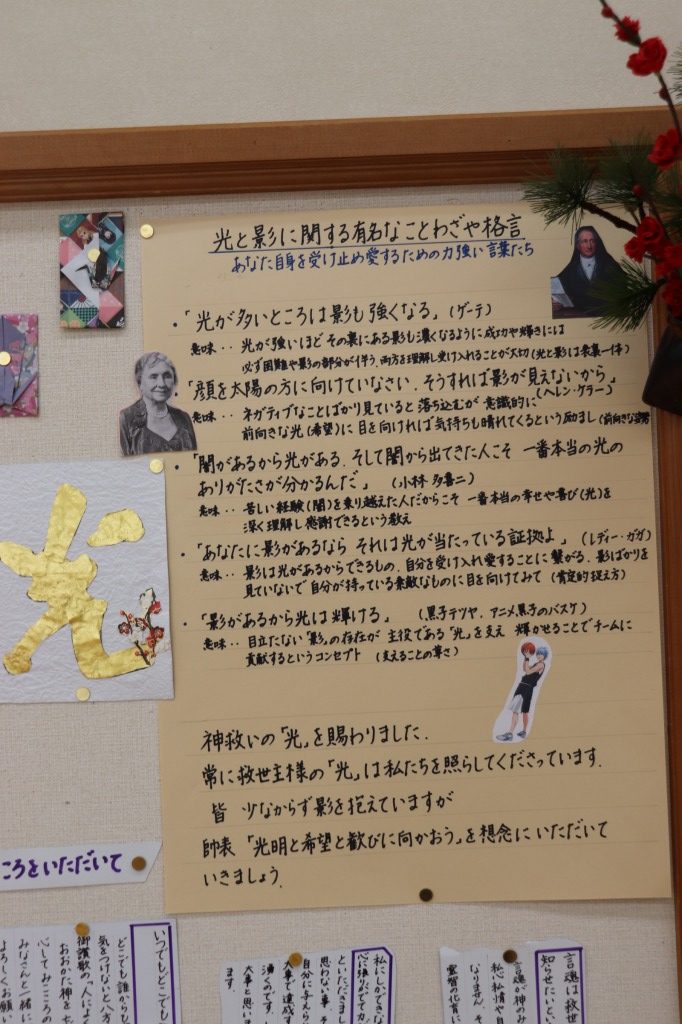 光と影に関する有名なことわざや格言
あなた自身を受け止め愛するための力強い言葉たち
・「光が多いところは影も強くなる」(ゲーテ)
意味‥光が強いほどその裏にある影も濃くなるように成功や輝きには
必ず困難や影の部分が伴う、両方を理解し受け入れることが大切(光と影は表裏一体)
・「顔を太陽の方に向けていなさい、そうすれば影が見えないから」
(ヘレン・ケラー)
意味‥ネガティブなことばかり見ていると落ち込むが意識的に
前向きな光(希望)に目を向ければ気持ちも晴れてくるという励まし(前向きな姿勢)
・「闇があるから光がある、そして闇から出てきた人こそ一番本当の光の
ありがたさが分かるんだ」(小林多喜二)
意味‥苦しい経験(闇)を乗り越えた人だからこそ一番本当の幸せや喜び(光)を
深く理解し感謝できるという教え
・「あなたに影があるなら それは光が当たっている証拠よ」(レディー・ガガ)
意味‥影は光があるからできるもの、自分を受け入れ愛することに繋がる、影ばかりを
見ていないで自分が持っている素敵なものに目を向けてみて(肯定的捉え方)
・「影があるから光は輝ける」(黒子テツヤ、アニメ、黒子のバスケ)
意味‥目立たない「影」の存在が主役である「光」を支え 輝かせることでチームに
貢献するというコンセプト(支えることの尊さ)
神救いの「光」を賜わりました、
常に救世主様の「光」は私たちを照らしてくださっています、
皆 少なからず影を抱えていますが
帥表「光明と希望と歓びに向かおう」を想念にいただいて
いきましょう、
光
ころをいただいて
いつでもどこでも
どこでも誰からも
気をつけないと八方
御讃歌の「人によく
おおかた神を
心してみこころの
みなさんと一緒に
よろしくお願い
私にしかできな
といただきまし
思わない事、
自分に与えら
大事で達成す
湧くのです、
大事と思いま
ます。
言魂は救世
知らせたいと、
言魂が神のみ
私心私情や自
なりません、